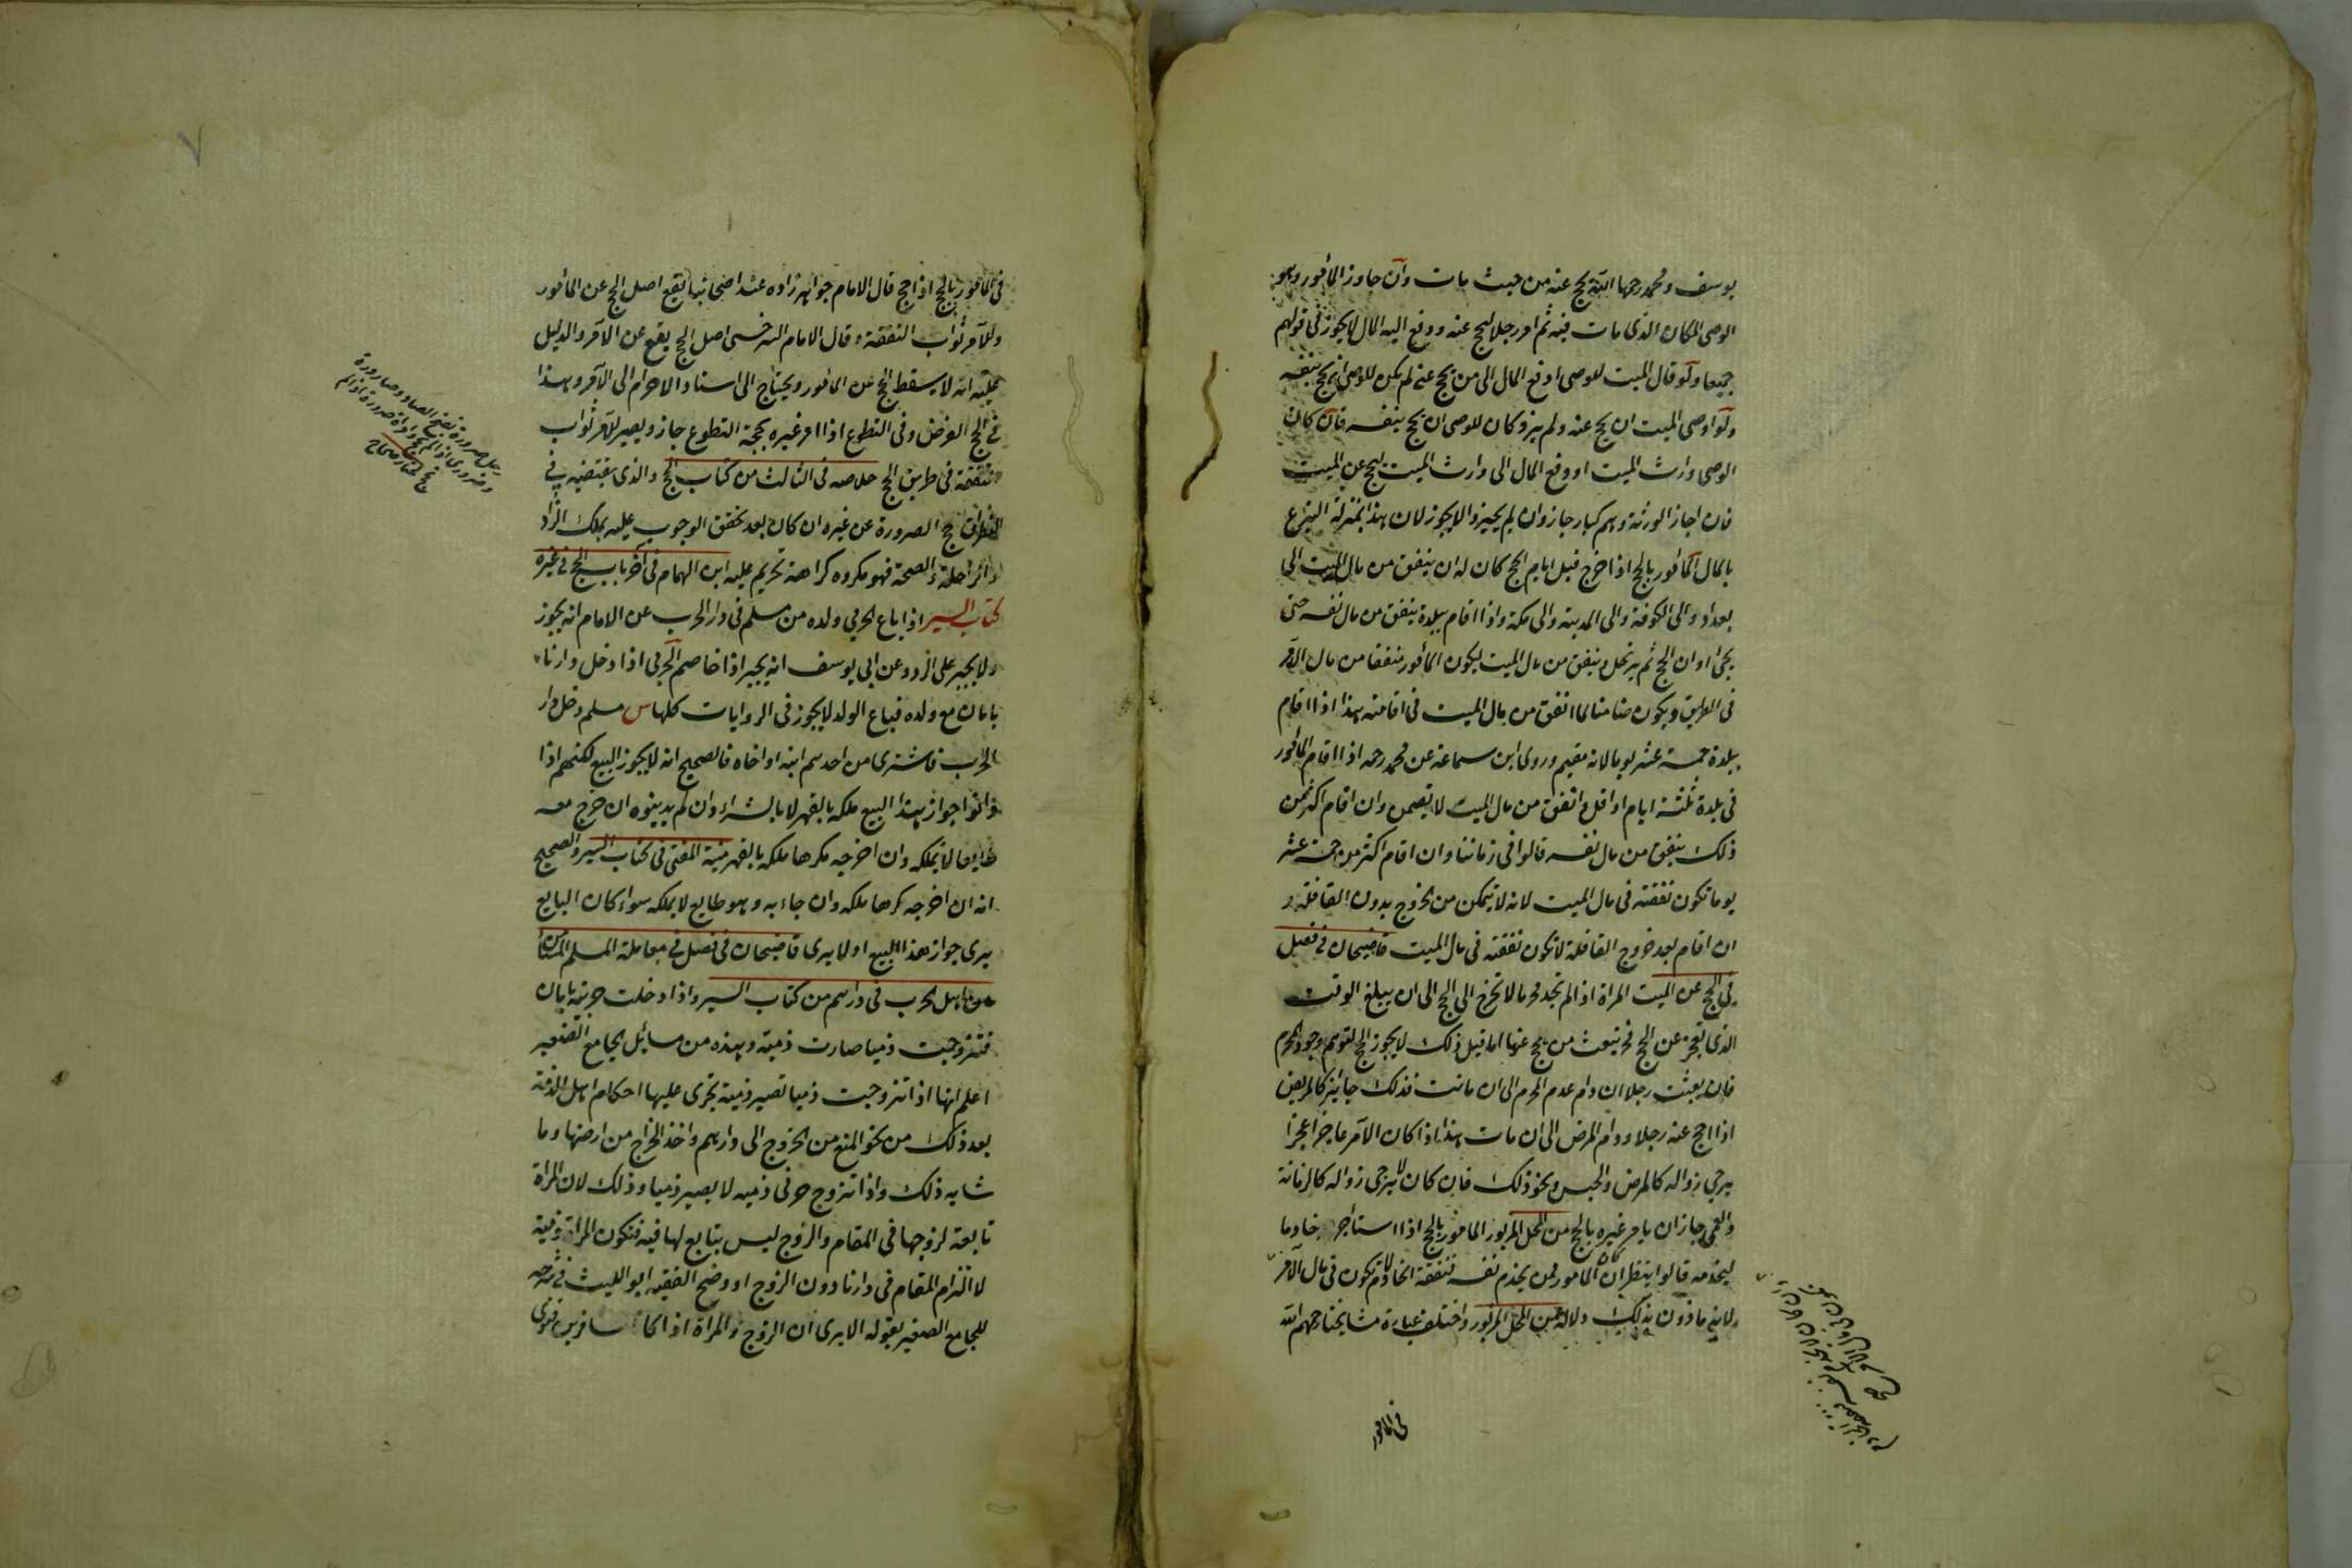 يوسف ومحمد رحمهما الله يحج عنه من حيث مات وان جاوز المأمور وهو
الوصى المكان الذى مات فيه ثم امر رجلا ليحج عنه ودفع اليه المال لا يجوز فى قولهم
جميعا ولو قال الميت للوصى ادفع المال الى من يحج عنى لم يكن للوصى ان يحج بنفسه
ولو اوصى الميت ان يحج عنه ولم يزد كان للوصى ان يحج بنفسه فان كان
الوصى وارث الميت او دفع المال الى وارث الميت ليحج عن الميت
فان اجاز الورثة وهم كبار جاز وان لم يجيزوا لا يجوز لان هذا بمنزلة التبرع
بالمال المأمور بالحج اذا خرج قبل ايام الحج كان له ان ينفق من مال الميت الى
بغداد والى الكوفة والى المدينة والى مكة واذا اقام ببلدة ينفق من مال نفسه حتى
يجئ اوان الحج ثم يرتحل وينفق من مال الميت ليكون المأمور منفقا من مال الآمر
فى الطريق ويكون ضامنا لما انفق من مال الميت فى اقامته هذا اذا اقام
ببلدة خمسة عشر يوما لانه مقيم وروى ابن سماعة عن محمد رحمه اذا اقام المأمور
فى بلدة ثلثة ايام او اقل وانفق من مال الميت لا يضمن وان اقام اكثر من
ذلك ينفق من مال نفسه قالوا فى زماننا وان اقام اكثر من خمسة عشر
يوما تكون نفقته فى مال الميت لانه لا يتمكن من الخروج بدون القافلة و
ان اقام بعد خروج القافلة لا تكون نفقته فى مال الميت قاضيخان فى فصل
فى الحج عن الميت المراة اذا لم تجد محرما لا تخرج الى الحج الى ان يبلغ الوقت
الذى تعجز عن الحج فحينئذ تبعث من يحج عنها اما قبل ذلك لا يجوز الحج لتوهم وجود المحرم
فان بعثت رجلا ان دام عدم المحرم الى ان ماتت فذلك جائز كالمريض
اذا احج عنه رجلا ودام المرض الى ان مات هذا اذا كان الآمر عاجزا عجزا
يرجى زواله كالمرض والحبس ونحو ذلك فان كان لا يرجى زواله كالزمانة
والعمى جاز ان يامر غيره بالحج من المحل المزبور المأمور بالحج اذا استأجر خادما
ليخدمه قالوا ينظر ان كان المأمور ممن يخدم نفسه فنفقة الخادم لا تكون فى مال الآمر
لانه ماذون بذلك دلالة من المحل المزبور واختلف عبارة مشايخنا رحمهم الله
فى المأمور
فى المأمور بالحج اذا حج قال الامام خواهر زاده عند اصحابنا يقع اصل الحج عن المأمور
وللآمر ثواب النفقة وقال الامام السرخسى اصل الحج يقع عن الآمر والدليل
عليه انه لا يسقط الحج عن المأمور ويحتاج الى اسناد الاحرام الى الآمر وهذا
فى الحج الفرض وفى التطوع اذا امر غيره بحجة التطوع جاز ويصير للآمر ثواب
النفقة فى طريق الحج خلاصه فى الثالث من كتاب الحج والذى يقتضيه
النظر ان حج الصرورة عن غيره ان كان بعد تحقق الوجوب عليه بملك الزاد
والراحلة والصحة فهو مكروه كراهة تحريم عليه ابن الهمام فى آخر باب الحج فى غيره
كتاب السير اذا باع الحربى ولده من مسلم فى دار الحرب عن الامام انه يجوز
ولا يجبر على الرد وعن ابى يوسف انه يجبر اذا خاصم الحربى اذا دخل دارنا
بامان مع ولده فباع الولد لا يجوز فى الروايات كلها س مسلم دخل دار
الحرب فاشترى من احدهم ابنه او اخاه فالصحيح انه لا يجوز البيع لكنهم اذا
دانوا جواز هذا البيع ملكه بالقهر لا بالشراء وان لم يدينوه ان خرج معه
طايعا لا يملكه وان اخرجه مكرها ملكه بالقهر منية المفتى فى كتاب السير والصحيح
انه ان اخرجه كرها ملكه وان جاء به وهو طايع لا يملكه سواء كان البايع
يرى جواز هذا البيع او لا يرى قاضيخان فى فصل فى معاملة المسلم المستأمن
مع اهل الحرب فى دارهم من كتاب السير واذا دخلت حربية بامان
فتزوجت ذميا صارت ذمية وهذه من مسائل الجامع الصغير
اعلم انها اذا تزوجت ذميا تصير ذمية تجرى عليها احكام اهل الذمة
بعد ذلك من نحو المنع من الخروج الى دارهم واخذ الخراج من ارضها وما
شابه ذلك واذا تزوج حربى ذميه لا يصير ذميا وذلك لان المراة
تابعة لزوجها فى المقام والزوج ليس بتابع لها فيه فتكون المراة ذمية
لالتزام المقام فى دارنا دون الزوج اوضح الفقيه ابو الليث فى شرحه
للجامع الصغير بقوله الا يرى ان الزوج والمراة اذا كانا مسافرين فنوى